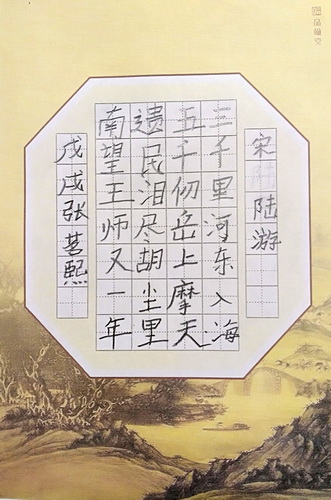 宋 陆游
三千里河东入海
五千仞岳上摩天
遗民泪尽胡尘里
南望王师又一年
戊戌张茗熙